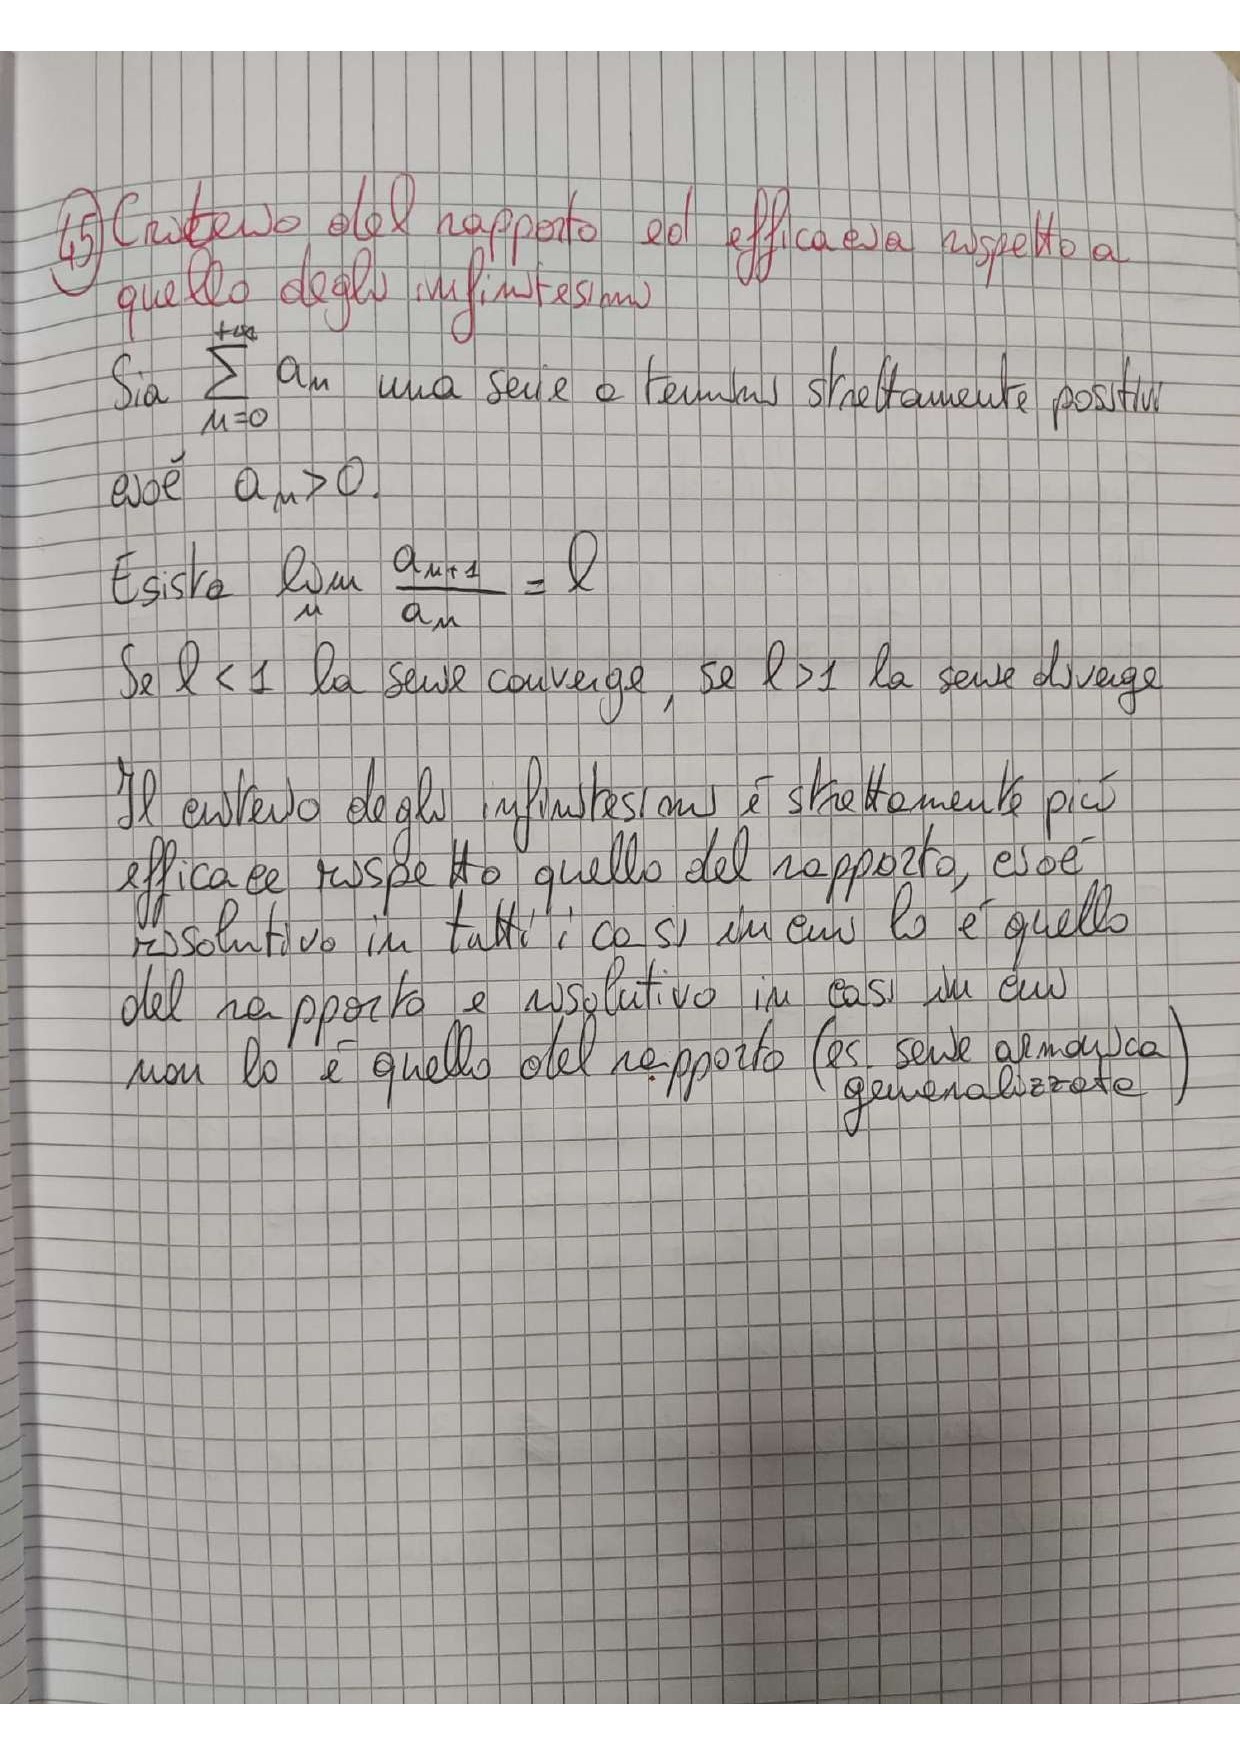 45) Criterio del rapporto ed efficacia rispetto a
quello degli infinitesimi
Sia \sum_{n=0}^{+\infty} a_n una serie a termini strettamente positivi
cioè a_n > 0.
Esista lim_n \frac{a_{n+1}}{a_n} = l
Se l < 1 la serie converge, se l > 1 la serie diverge
Il criterio degli infinitesimi è strettamente più
efficace rispetto quello del rapporto, cioè
risolutivo in tutti i casi in cui lo è quello
del rapporto e risolutivo in casi in cui
non lo è quello del rapporto (es serie armonica
generalizzate)